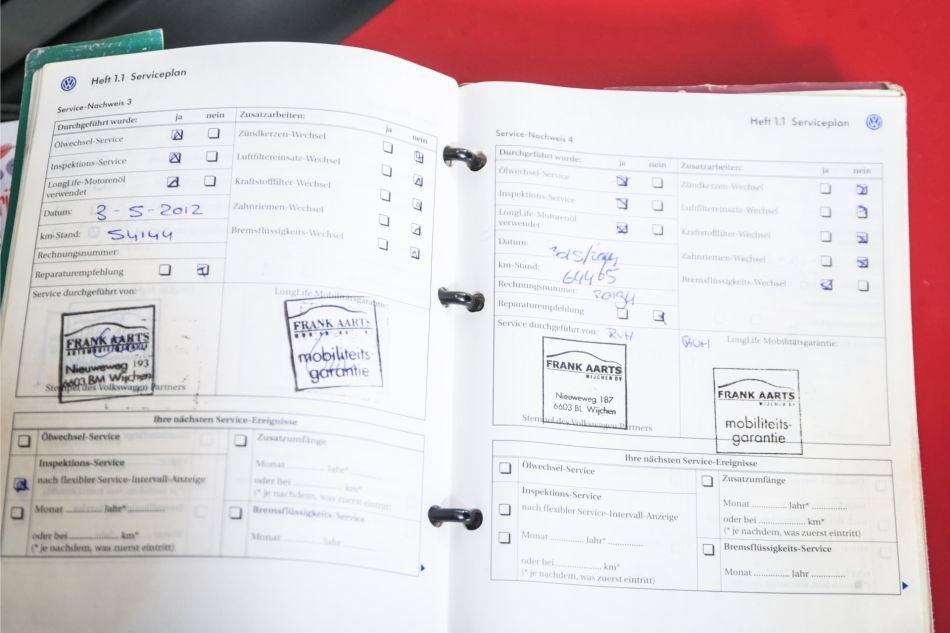 Heft 1.1 Serviceplan
Service-Nachweis 3
Durchgeführt wurde: ja nein
Ölwechsel-Service
Inspektions-Service
LongLife-Motorenöl
verwendet
Datum: 3-5-2012
km-Stand: 54144
Rechnungsnummer:
Reparaturempfehlung
Zusatzarbeiten: ja nein
Zündkerzen-Wechsel
Luftfiltereinsatz-Wechsel
Kraftstofffilter-Wechsel
Zahnriemen-Wechsel
Bremsflüssigkeits-Wechsel
Service durchgeführt von:
FRANK AARTS
Nieuweweg 193
6603 BM Wijchen
Stempel des Volkswagen Partners
LongLife Mobilitätsgarantie:
FRANK AARTS
mobiliteits-
garantie
Ihre nächsten Service-Ereignisse
Ölwechsel-Service
Inspektions-Service
nach flexibler Service-Intervall-Anzeige
Monat ............ Jahr*
oder bei ............ km*
(* je nachdem, was zuerst eintritt)
Zusatzumfänge
Monat ............ Jahr*
oder bei ............ km*
(* je nachdem, was zuerst eintritt)
Bremsflüssigkeits-Service
Monat ............ Jahr ............
Heft 1.1 Serviceplan
Service-Nachweis 4
Durchgeführt wurde: ja nein
Ölwechsel-Service
Inspektions-Service
LongLife-Motorenöl
verwendet
Datum:
km-Stand: 64465
Rechnungsnummer:
Reparaturempfehlung
Zusatzarbeiten: ja nein
Zündkerzen-Wechsel
Luftfiltereinsatz-Wechsel
Kraftstofffilter-Wechsel
Zahnriemen-Wechsel
Bremsflüssigkeits-Wechsel
Service durchgeführt von: RUH
FRANK AARTS
WIJCHEN BV
Nieuweweg 187
6603 BL Wijchen
Stempel des Volkswagen Partners
RUH LongLife Mobilitätsgarantie:
FRANK AARTS
WIJCHEN BV
mobiliteits-
garantie
Ihre nächsten Service-Ereignisse
Ölwechsel-Service
Inspektions-Service
nach flexibler Service-Intervall-Anzeige
Monat ............ Jahr* ............
oder bei ............ km*
(* je nachdem, was zuerst eintritt)
Zusatzumfänge
Monat ............ Jahr* ............
oder bei ............ km*
(* je nachdem, was zuerst eintritt)
Bremsflüssigkeits-Service
Monat ............ Jahr ............